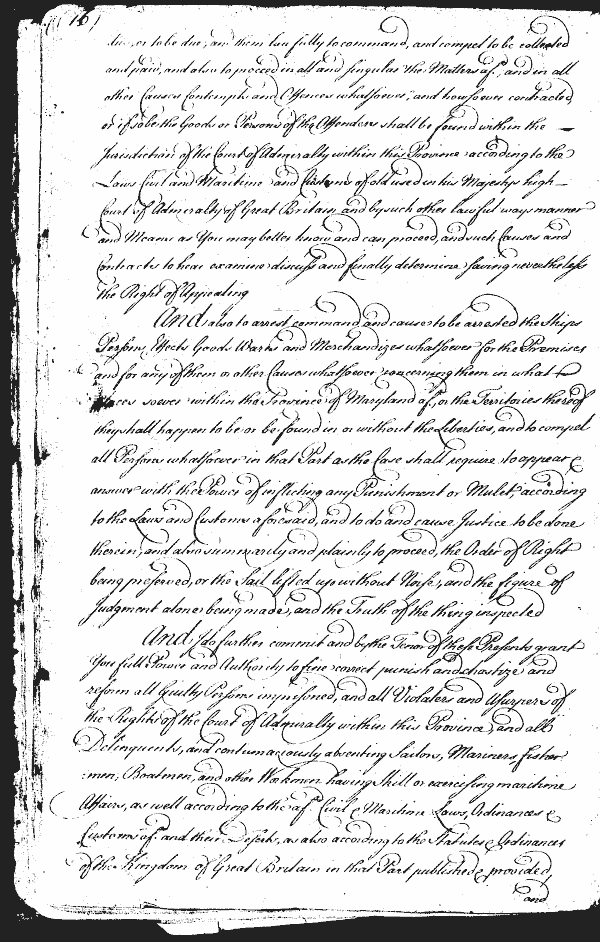 16)
due, or to be due, and them lawfully to command, and compel to be collected
and paid, and also to proceed in all and singular the Matters afs.d, and in all
other Causes Contempts and Offences whatsoever, and howsoever contracted
or if so be the Goods or Persons of the Offenders shall be found within the —
Jurisdiction of the Court of Admiralty within this Province according to the
Laws Civil and Maritime and Customs of old used in his Majestys high —
Court of Admiralty of Great Britain and by such other lawful ways manner
and Means as You may better know and can proceed, and such Causes and
Contracts to hear examine discuss and finally determine saving nevertheless
the Right of Appealing
And also to arrest command and cause to be arrested the Ships
Persons Effects Goods Wares and Merchandizes whatsoever for the Premises
and for any of them or other Causes whatsoever concerning them in what —
places soever within the Province of Maryland afs.d, or the Territories thereof
they shall happen to be or be found in or without the Liberties, and to compel
all Persons whatsoever in that Part as the Case shall require to appear &
answer with the Power of inflicting any Punishment or Mulct, according
to the Laws and Customs aforesaid, and to do and cause Justice to be done
therein, and also summarily and plainly to proceed, the Order of Right
being preserved, or the Sail lifted up without Noise, and the figure of
Judgment alone being made, and the Truth of the thing inspected
And I do further commit and by the Tenor of these Presents grant
You full Power and Authority to fine correct, punish and chastize and
reform all Guilty Persons imprisoned, and all Violaters and Usurpers of
the Rights of the Court of Admiralty within this Province, and all
Delinquents, and contumaciously absenting Sailors, Mariners, fisher
:men, Boatmen, and other Workmen having Skill or exercising maritime
Affairs, as well according to the afs.d Civil & Maritime Laws, Ordinances &
Customs afs.d and their Deserts, as also according to the Statutes & Ordinances
of the Kingdom of Great Britain in that Part published & provided,
and